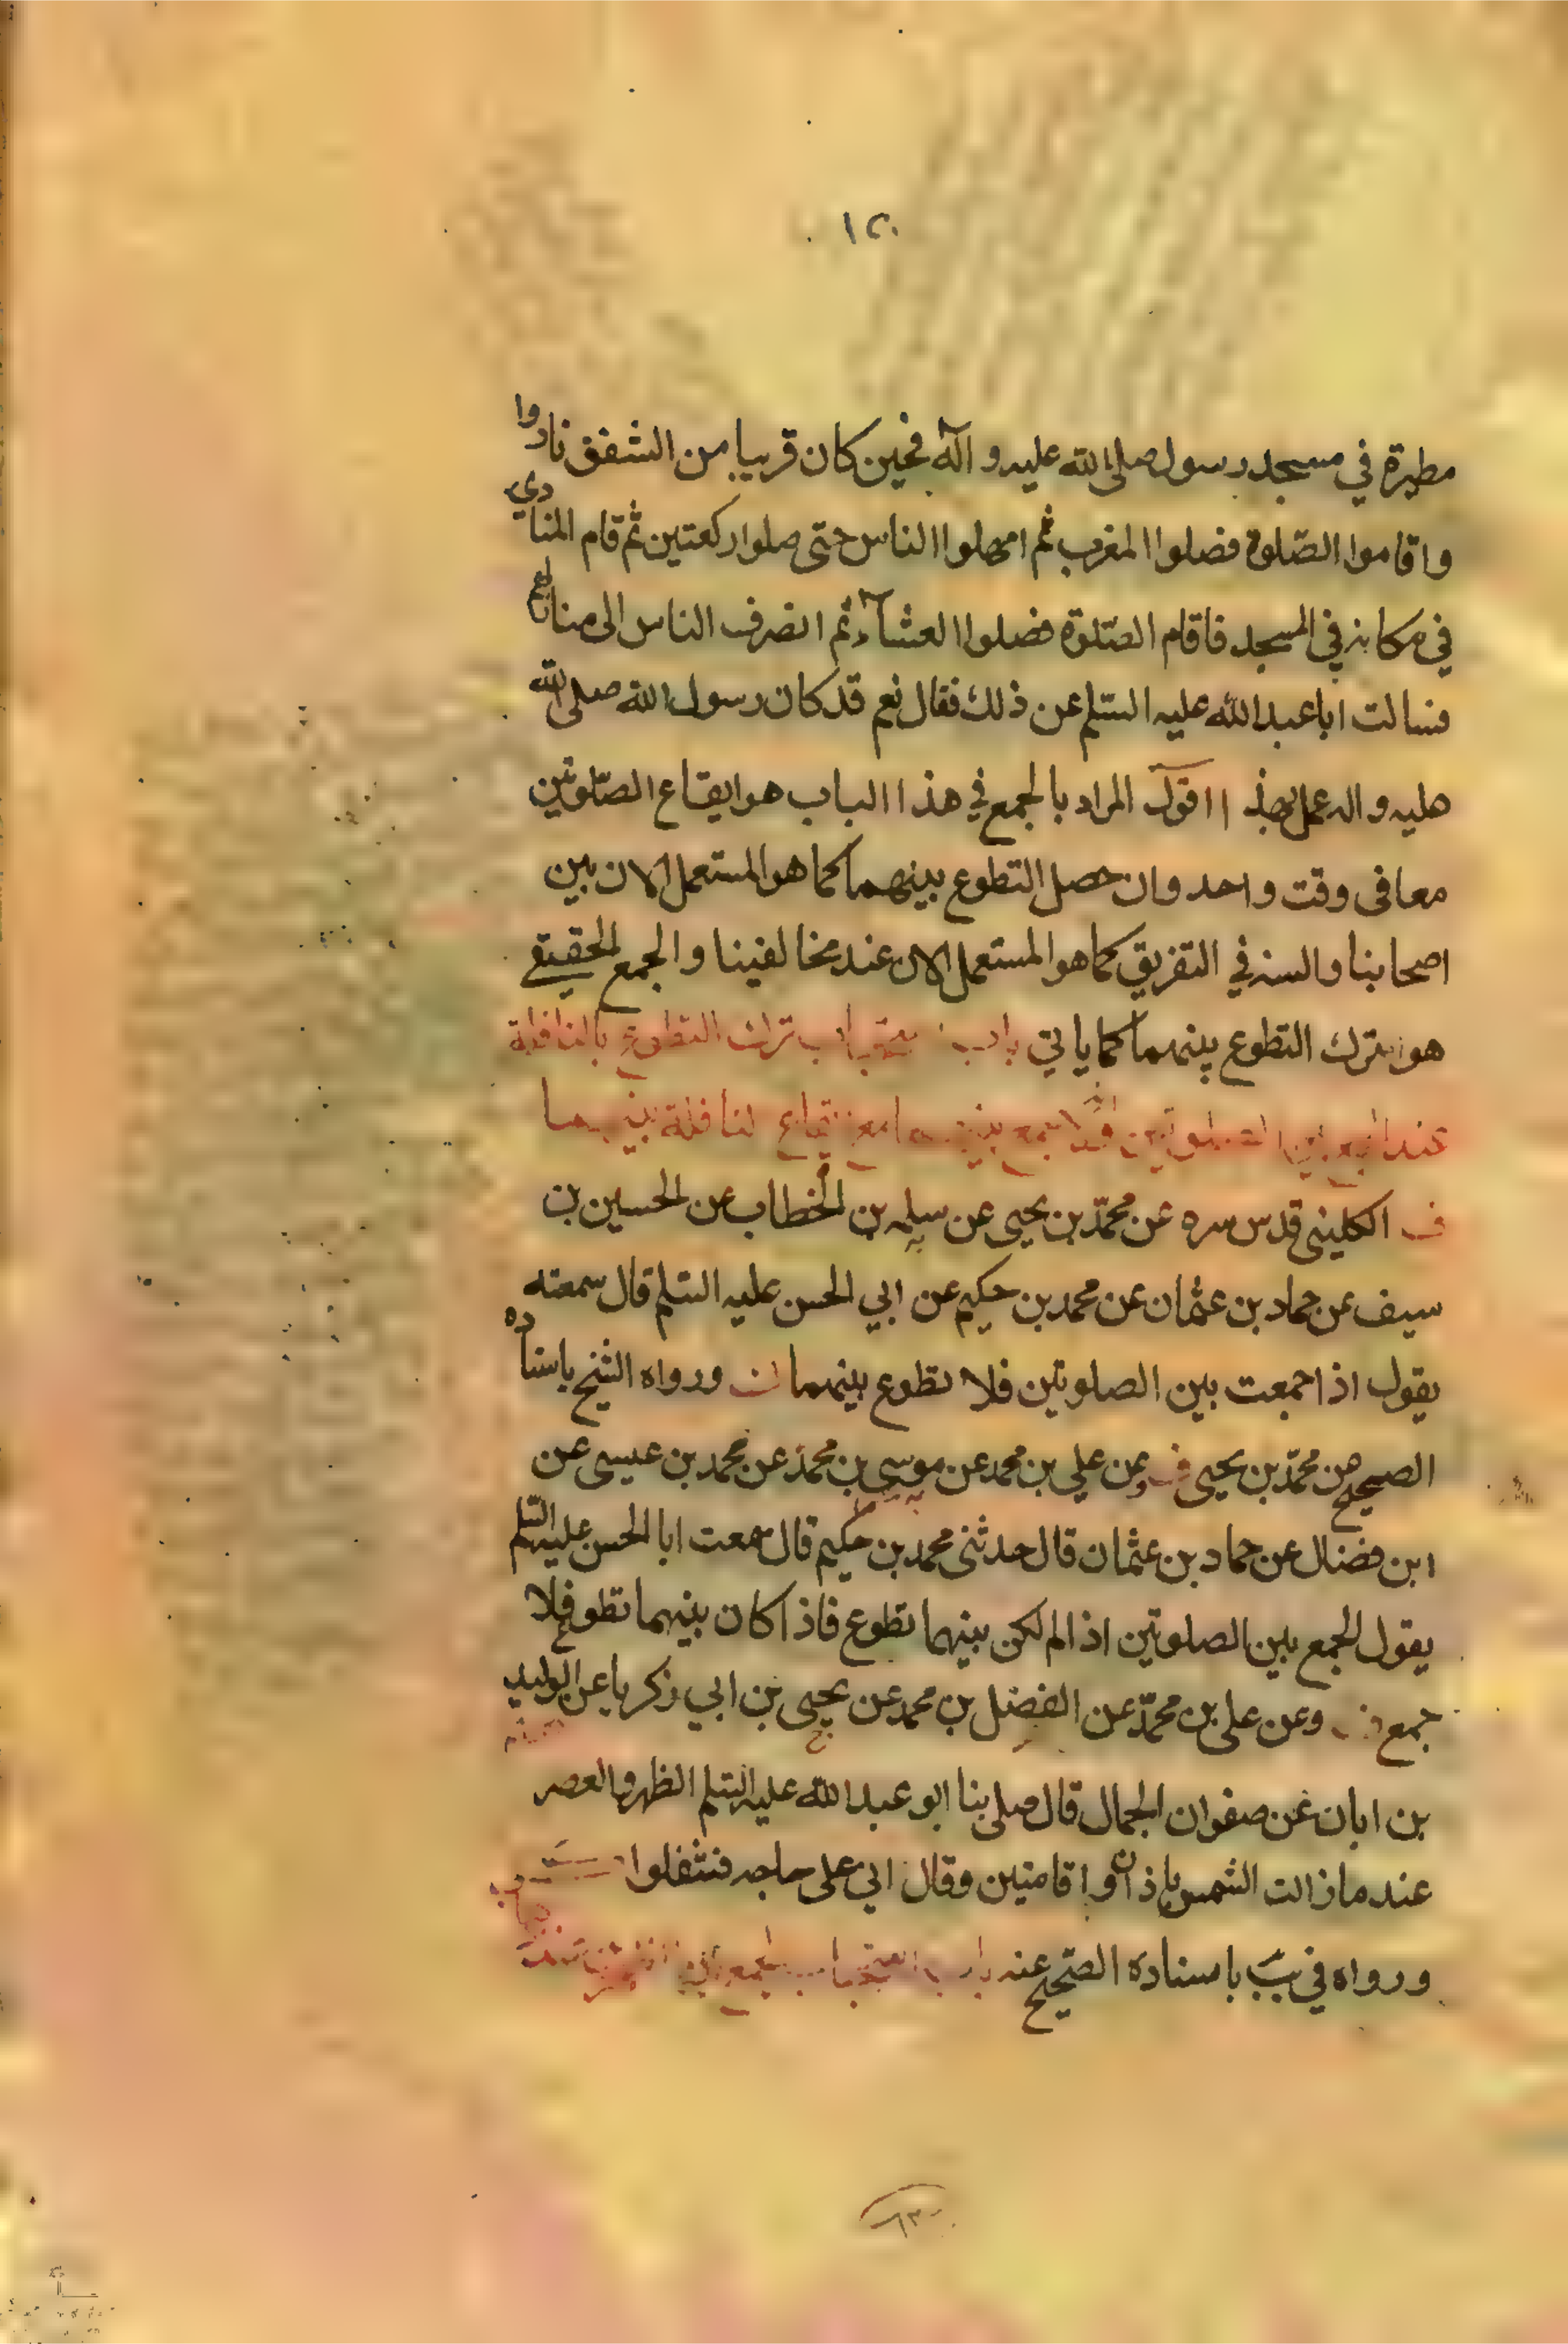 ١٢٠
مطيرة في مسجد رسول صلى الله عليه و آله فحين كان قريبا من الشفق نادوا
واقاموا الصّلوة فصلوا المغرب ثم امهلوا الناس حتى صلوا ركعتين ثم قام المنادي
في مكانه في المسجد فاقام الصّلوة فصلوا العشآء ثم انصرف الناس الى منازلهم
فسالت ابا عبد الله عليه السّلم عن ذلك فقال نعم قد كان رسول الله صلى الله
عليه و اله عمل بهذا اقول المراد بالجمع في هذا الباب هو ايقاع الصّلوتين
معا في وقت واحد وان حصل التطوع بينهما كما هو المستعمل الان بين
اصحابنا والسنه في التفريق كما هو المستعمل الان عند مخالفينا و الجمع الحقيقي
هو بترك التطوع بينهما كما ياتي باب استحباب ترك التطوع بالنافلة
عند الجمع بين الصلوتين بينهما
الكليني قدس سره عن محمّد بن يحيى عن سلمه بن الخطاب عن الحسين بن
سيف عن حماد بن عثمان عن محمد بن حكيم عن ابي الحسن عليه السّلم قال سمعته
يقول اذا جمعت بين الصلوتين فلا تطوع بينهما ورواه الشيخ باسناده
الصحيح عن محمّد بن يحيى وعن علي بن محمد عن موسى بن محمد عن محمد بن عيسى عن
ابن فضال عن حماد بن عثمان قال حدثنى محمد بن حكيم قال سمعت ابا الحسن عليه السّلم
يقول الجمع بين الصلوتين اذا لم لكن بينهما تطوع فاذا كان بينهما تطوع فلا
جمع وعن على بن محمّد عن الفضل بن محمد عن يحيى بن ابي زكريا عن الوليد
بن ابان عن صفوان الجمال قال صلى بنا ابو عبد الله عليه السّلم الظهر والعصر
عند ما زالت الشمس باذان واقامتين وقال اني على حاجه فتنفلوا
ورواه في يب باسناده الصّحيح عنه باب استحباب الجمع بين